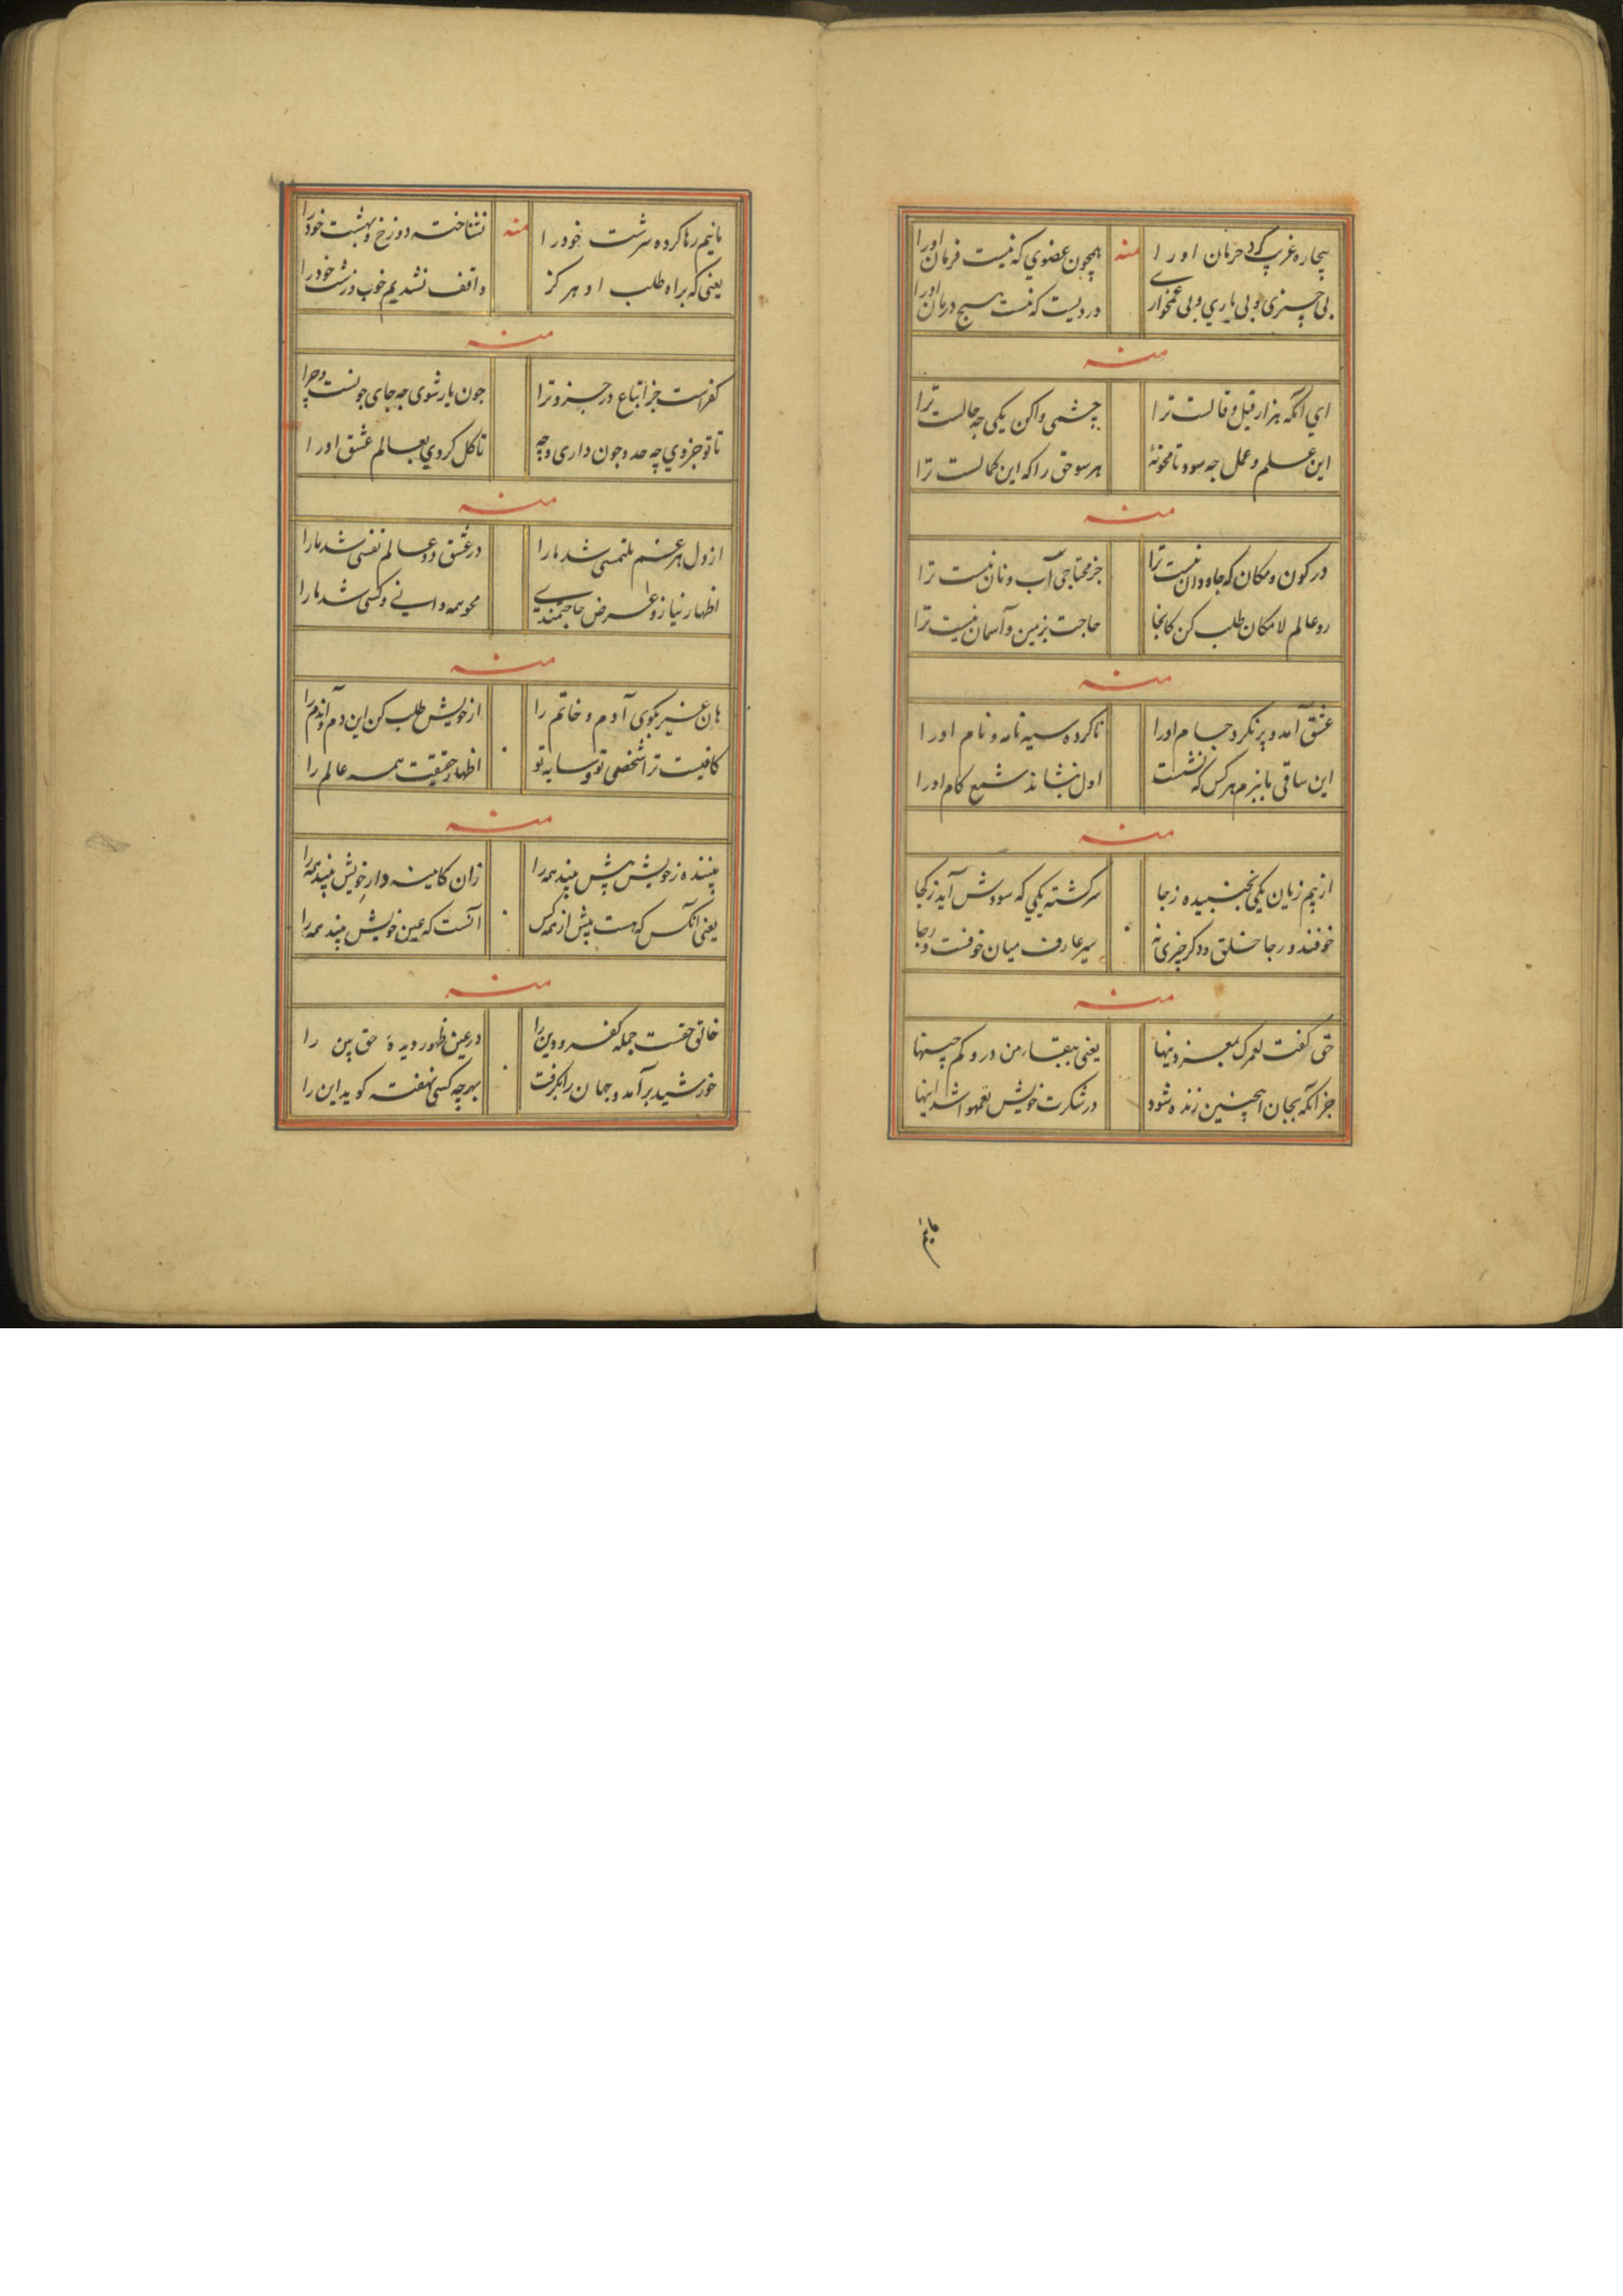 بیچاره غریب کرد حرمان او را
منه
همچون عضوی که نیست فرمان او را
بی چیزی و بی یاری و بی غمخواری
دردیست که نیست هیچ درمان او را
منه
ای انکه هزار قیل و قالست ترا
چشمی واکن یکی چه حالست ترا
این علم و عمل چه سود تا محو نهٔ
هر سو حق را که این کمالست ترا
منه
در کون و مکان که جاودان نیست ترا
جز محتاجی آب و نان نیست ترا
رو عالم لامکان طلب کن کانجا
حاجت بزمین و آسمان نیست ترا
منه
عشق آمد و پر نکرد جام او را
ناکرده سیه نامه و نام او را
این ساقی ما ببزم هر کس که نشست
اول بنشاند شمع کام او را
منه
از بیم زیان یکی نجنبیده ز جا
سرکشته یکی که سودش آید ز کجا
خوفند و رجا خلق و دکر چیزی نه
سیر عارف میان خوفست و رجا
منه
حق کفت لعمرک
یعنی ببقاء من در و کم
جز انکه بجان اینچنین زنده شود
در سکرت خویش یعمهوا شد اینها
مائیم
مائیم رها کرده سرشت خود را
منه
نشناخته دوزخ و بهشت خود را
یعنی که براه طلب او هرکز
واقف نشدیم خوب و زشت خود را
منه
کفر است جز اتباع در جزو ترا
چون یار شوی چه جای چونست و چرا
تا تو جزوی چه حد و چون داری و چه
تا کل کردی بعالم عشق او را
منه
از دل هر غم ملتمسی شد ما را
در عشق دو عالم نفسی شد ما را
اظهار نیاز و عرض حاجتمندی
محو همه و انی و کسی شد ما را
منه
هان غیر مکوی آدم و خاتم را
از خویش طلب کن این دم و آندم را
کافیست ترا شخص تو و سایه تو
اظهار حقیقت همه عالم را
منه
بیننده ز خویش پیش بیند همه را
زان کاینه دار خویش بیند همه را
یعنی انکس که هست پیش از همه کس
آنست که عین خویش بیند همه را
منه
خالق حقست جمله کفر و دین را
در عین ظهور دیده حق بین را
خورشید برآمد و جهان را بکرفت
بهر چه کسی نهفته کوید این را